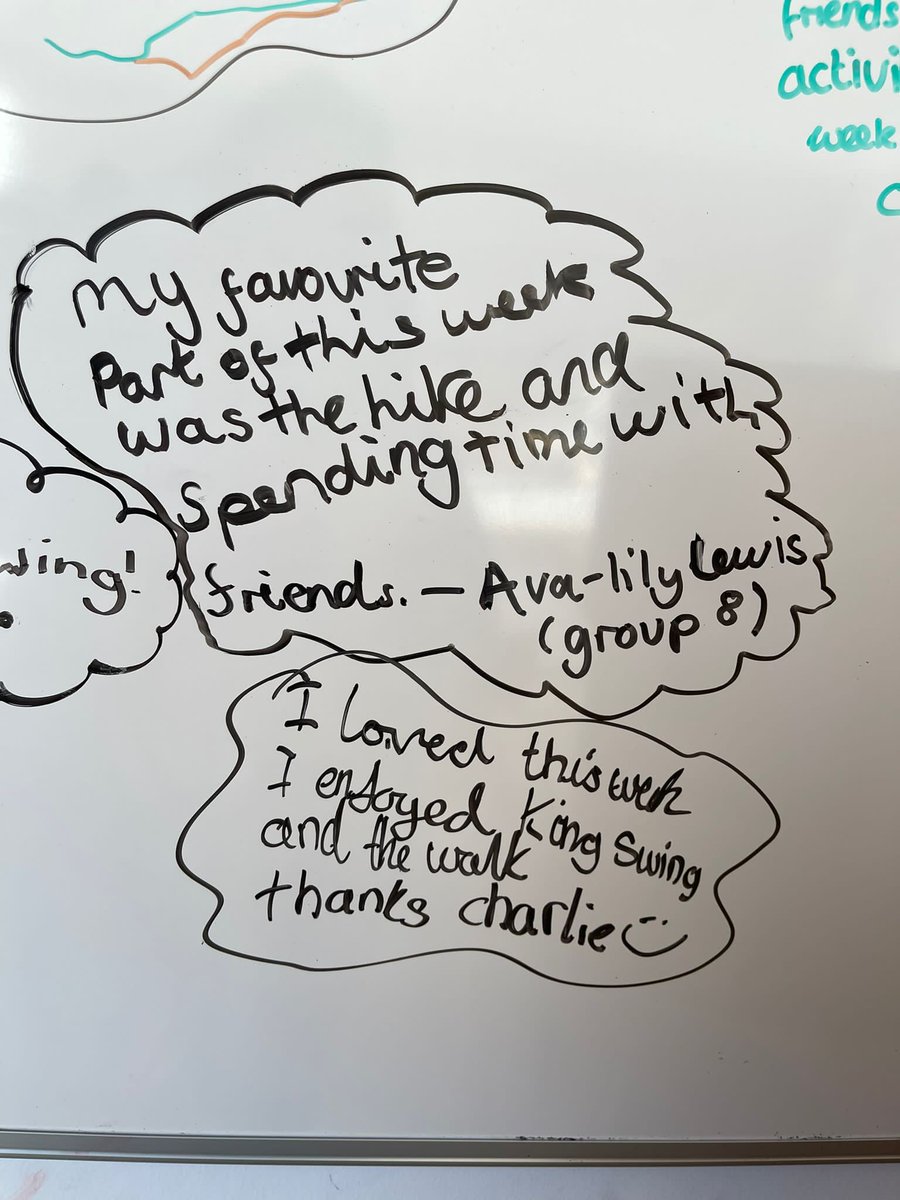 friends
activi
week
My favourite
Part of this week
was the hike and
spending time with
friends. – Ava-lily Lewis
(group 8)
I loved this week
I enjoyed King Swing
and the walk
thanks charlie